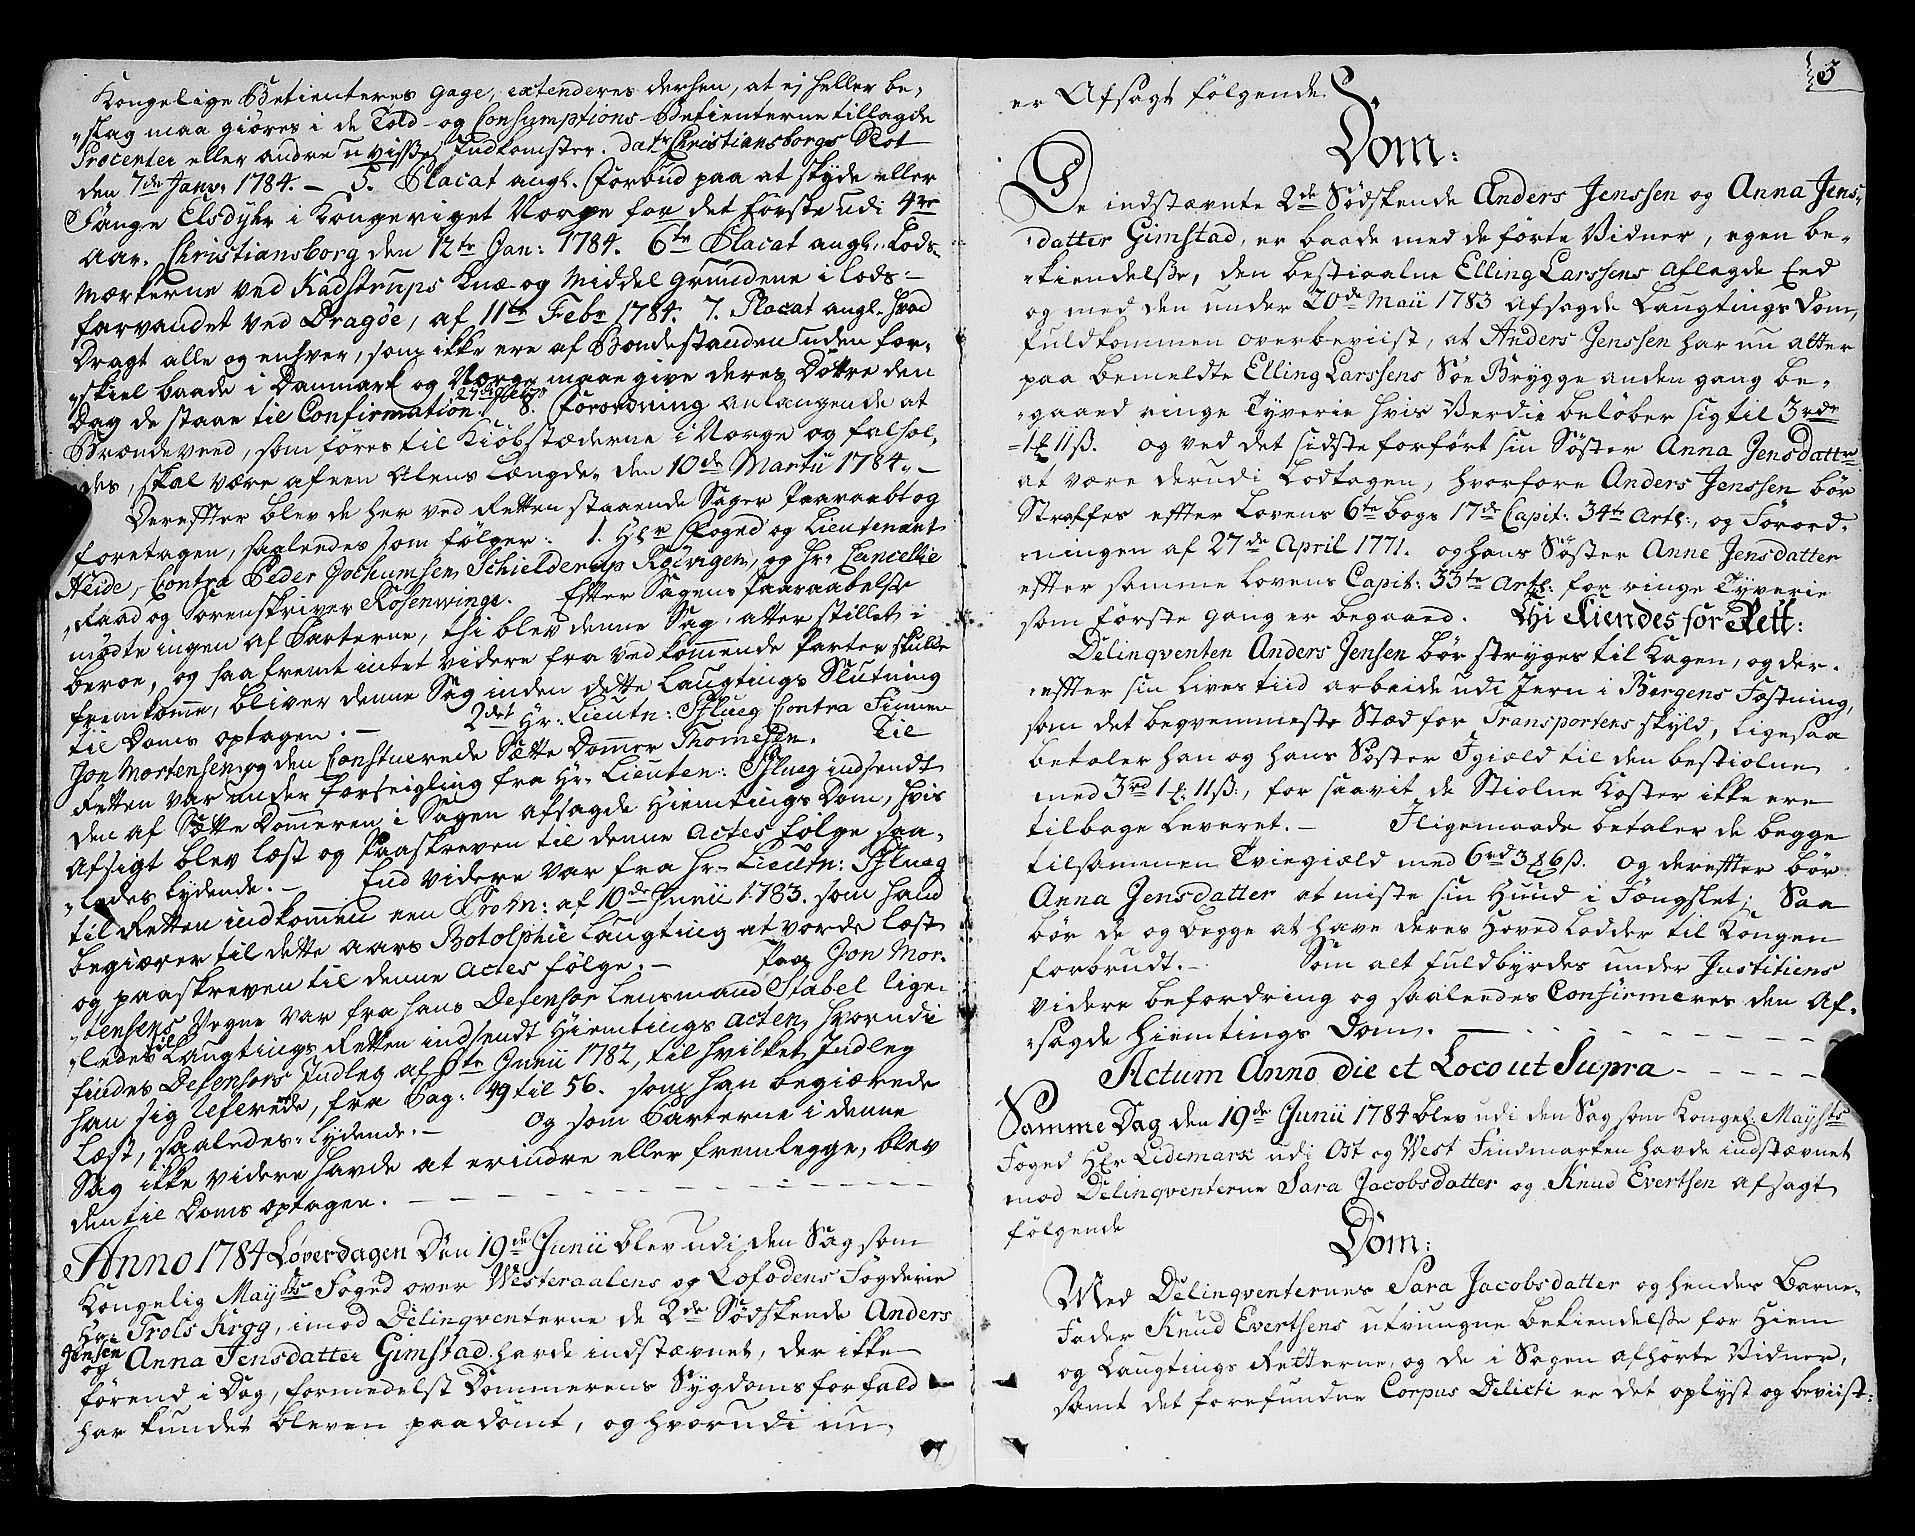 Kongelige Betienteres gage, extenderes derhen, at ej heller be,
„slag maa giøres i de Told- og Consumptions-Betienterne tillagde
Procenter eller andre u visße Indkomster. dat: Christiansborgs Slot
den 7de Janv: 1784. – 5. Placat angl. Forbud paa at skyde eller
Fange Elsdyhr i Kongeriget Norge for det første udi 4re
Aar. Christiansborg den 12te Jan: 1784. 6te Placat angl: Lods-
Mærkerne ved Kadstrups Knæ og Middel Grundene i Lods-
farvandet ved Dragöe, af 11te Febr 1784. 7. Placat angl. hvad
Dragt alle og enhver, som ikke ere af Bondestanden uden for-
„skiel baade i Danmark og Norge maae give deres Döttre den
Dag de staae til Confirmation 8. Forordning anlangende at
Brændeveed, som föres til Kiöbstæderne i Norge og falhol,
des, skal være af een Alens Længde, den 10de Martii 1784. –
Derefter blev de her ved Retten staaende Sager Paaraabt og
foretagen, saaledes som følger: 1. Hr Foged og Lieutenant
Heide, Contra Peder Jochumsen, Schielderup Röevigen, og Hr: Cancellie
„Raad og Sorenskriver Rosenwinge. Efter Sagens Paaraabelse
mödte ingen af Parterne, thi blev denne Sag, atter stillet i
beroe, og saafremt intet videre fra vedkommende Parter skulde
fremkomme, bliver denne Sag inden dette Laugtings Slutning
til Doms optagen. – 2det Hr: Lieutn: Pflueg Contra Finnen
Jon Mortensen, og den Constuerede Sætte Dommer Thomesen. Til
Retten var under forseigling fra Hr: Lieuten: Pflueg indsendt
den af Sætte Dommeren i Sagen afsagde Hiemtings Dom, hvis
Afsigt blev læst og Paaskreven til denne actes følge saa,
„ledes lydende. – End videre var fra Hr: Lieutn: Pflueg
til Retten indkommen een Prohn: af 10de Junii 1783. som hand
begiærer til dette aars Botolphii Laugting at vorde læst
og paaskreven til denne actes følge. – Paa Jon Mor-
„tensens Vegne var fra hans Defensor Lensmand Stabel lige-
„ledes til Laugtings Retten indsendt Hiemtings acten, hvorudi
findes Defensors Indleg af 8te Junii 1782, til hvilket Indleg
han sig refererede, fra Pag: 49 til 56. som han begiærede
læst, saaledes: lydende. – Og som Parterne i denne
Sag ikke videre havde at erindre eller fremlegge, blev
den til Doms optagen. –
Anno 1784 Løverdagen Den 19de Junii blev udi den Sag som
Kongelig Mayts Foged over Westeraalens og Lofodens Fogderie
Hr: Trols Krog, imod Delinqventerne de 2de Södskende Anders
Jensen og Anna Jensdatter Gimstad havde indstævnet, der ikke
förend i Dag, formedelst Dommerens Sygdoms forfald
har kundet bleven paadömt, og hvorudi nu
3
er Afsagt følgende
Dom:
De indstævnte 2de Södskende Anders Jenssen og Anna Jens-
datter Gimstad, er baade med de förte Vidner, egen be-
„kiendelße, den bestiaalne Elling Larssens aflagde Eed
og med den under 20de Maii 1783 afsagde Laugtings Dom,
fuldkommen overbeviist, at Anders Jenssen har nu atter
paa bemeldte Elling Larssens Söe Brygge anden gang be-
„gaaed ringe Tyverie hvis Verdie beløber sig til 3rdr
1 ℔ 11ß. og ved det sidste forfört sin Söster Anna Jensdatter
at være derudi Lodtagen, hvorfore Anders Jenssen bör
Straffes effter Lovens 6te bogs 17de Capit: 34te Artl:, og Forord-
ningen af 27de April 1771. og hans Söster Anne Jensdatter
effter samme Lovens Capit: 33te Artl: for ringe Tyverie
som förste gang er begaaed. Thi Kiendes for Rett:
Delinqventen Anders Jensen bör stryges til Kagen, og der-
„effter sin Lives tiid arbeide udi Jern i Bergens Fæstning,
som det beqvemmeste Stæd for Transportens skyld, ligesaa
betaler han og hans Söster Igiæld til den bestiolne
med 3rd 1 ℔ 11ß:, for saavit de Stiolne Koster ikke ere
tilbage Leveret. – Iligemaade betaler de begge
tilsammen Tviegiæld med 6rd 3 ℔ 6ß. Og dereffter bör
Anna Jensdatter at miste sin Huud i Fængslet; Saa
bör de og begge at have deres Hoved Lodder til Kongen
forbrudt. – Som alt fuldbyrdes under Justitiens
videre befordring og saaledes Confirmeres den Af-
„sagde Hiemtings Dom. –
Actum Anno die et Loco ut Supra
Samme Dag den 19de Junii 1784 blev udi den Sag som Kongel: Mayts
Foged Hr Lidemark udi Ost og Vest Findmarken havde indstævnet
mod Delinqventerne Sara Jacobsdatter og Knud Evertsen afsagt
følgende
Dom:
Med Delinqventernes Sara Jacobsdatter og hendes Barne-
Fader Knud Evertsens utvungne bekiendelße for Hiem
og Laugtings Retterne, og de i Sagen afhørte Vidner,
samt det forefundne Corpus Delicti er det oplyst og beviist: